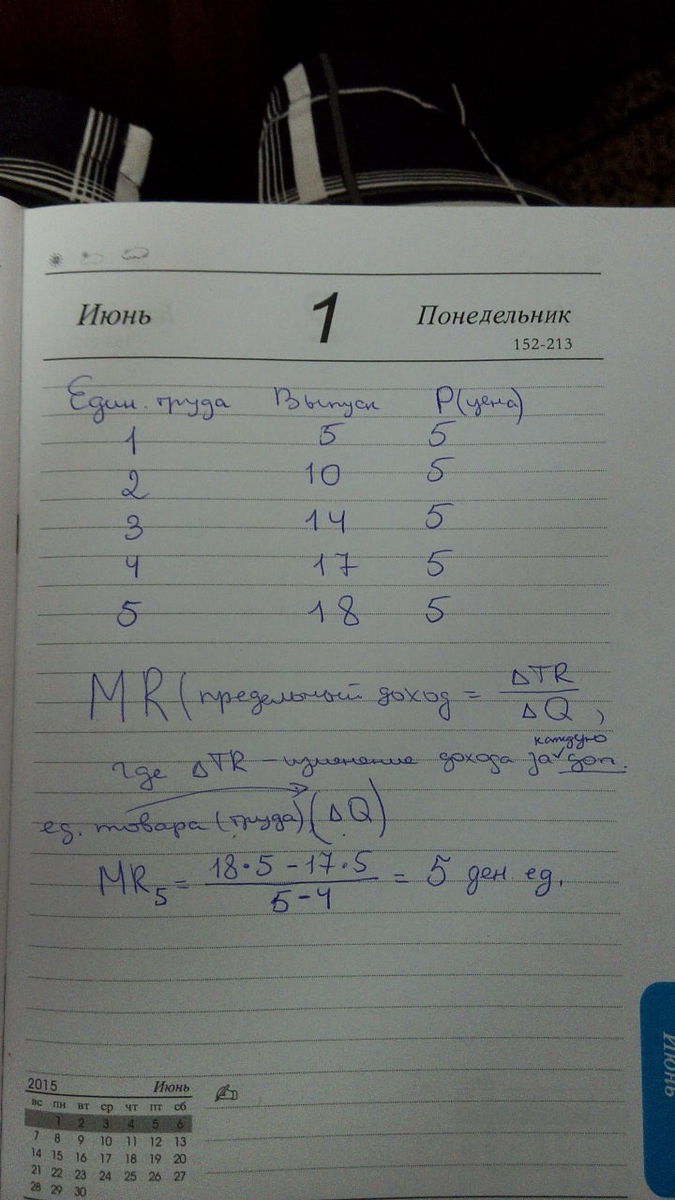 Июнь 1 Понедельник
152-213
Един. труда Выпуск P(цена)
1 5 5
2 10 5
3 14 5
4 17 5
5 18 5
MR (предельный доход = ΔTR / ΔQ ,
каждую
где ΔTR - изменение дохода за доп.
ед. товара (труда) (ΔQ)
MR5 = 18·5 - 17·5 / 5-4 = 5 ден ед.
Июнь
2015 Июнь
вс пн вт ср чт пт сб
1 2 3 4 5 6
7 8 9 10 11 12 13
14 15 16 17 18 19 20
21 22 23 24 25 26 27
28 29 30